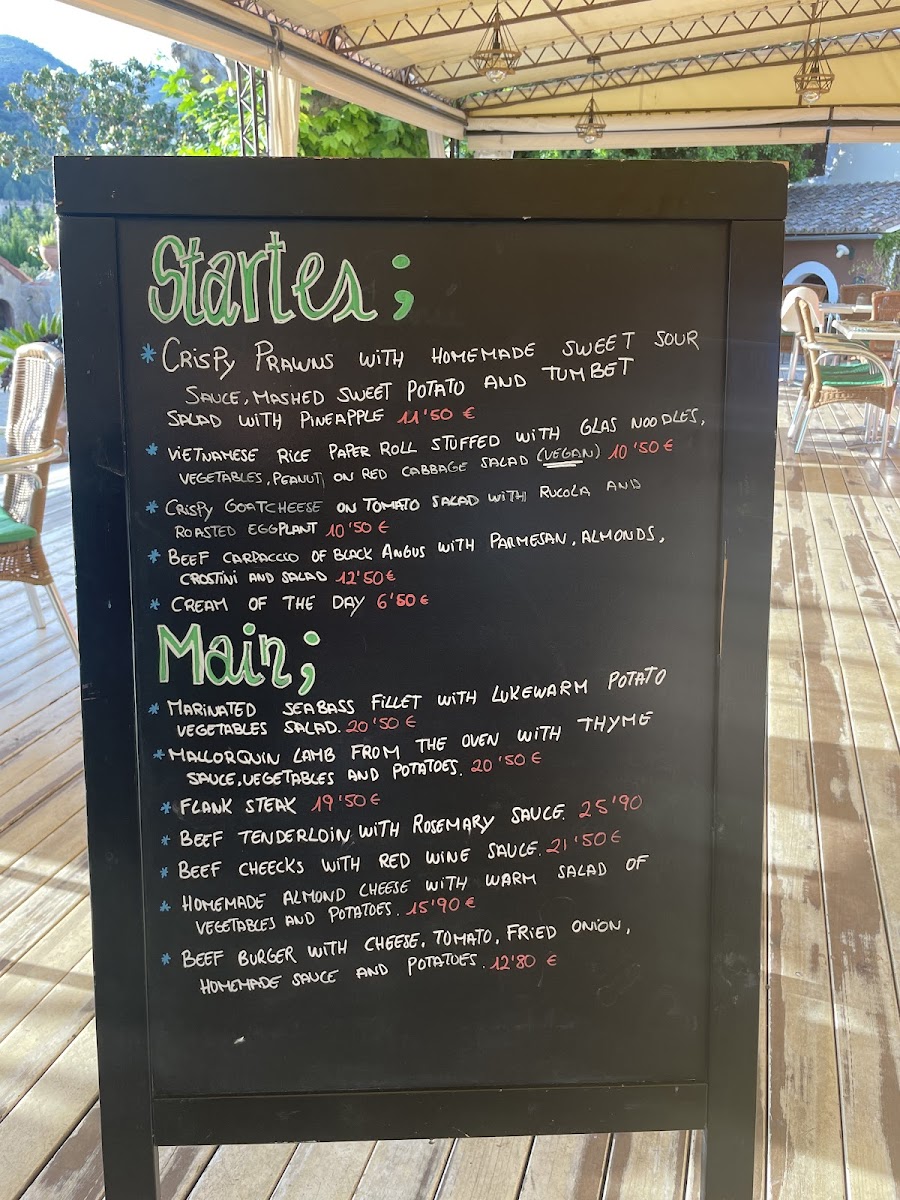 Startes;
* CRISPY PRAWNS WITH HOMEMADE SWEET SOUR
SAUCE, MASHED SWEET POTATO AND TUMBET
SALAD WITH PINEAPPLE 11'50 €
* VIETNAMESE RICE PAPER ROLL STUFFED WITH GLAS NOODLES,
VEGETABLES, PEANUT, ON RED CABBAGE SALAD (VEGAN) 10'50 €
* CRISPY GOATCHEESE ON TOMATO SALAD WITH RUCOLA AND
ROASTED EGGPLANT 10'50 €
* BEEF CARPACCIO OF BLACK ANGUS WITH PARMESAN, ALMONDS,
CROSTINI AND SALAD 12'50 €
* CREAM OF THE DAY 6'50 €
Main;
* MARINATED SEABASS FILLET WITH LUKEWARM POTATO
VEGETABLES SALAD. 20'50 €
* MALLORQUIN LAMB FROM THE OVEN WITH THYME
SAUCE, VEGETABLES AND POTATOES. 20'50 €
* FLANK STEAK 19'50 €
* BEEF TENDERLOIN WITH ROSEMARY SAUCE. 25'90
* BEEF CHEECKS WITH RED WINE SAUCE. 21'50 €
* HOMEMADE ALMOND CHEESE WITH WARM SALAD OF
VEGETABLES AND POTATOES. 15'90 €
* BEEF BURGER WITH CHEESE, TOMATO, FRIED ONION,
HOMEMADE SAUCE AND POTATOES. 12'80 €